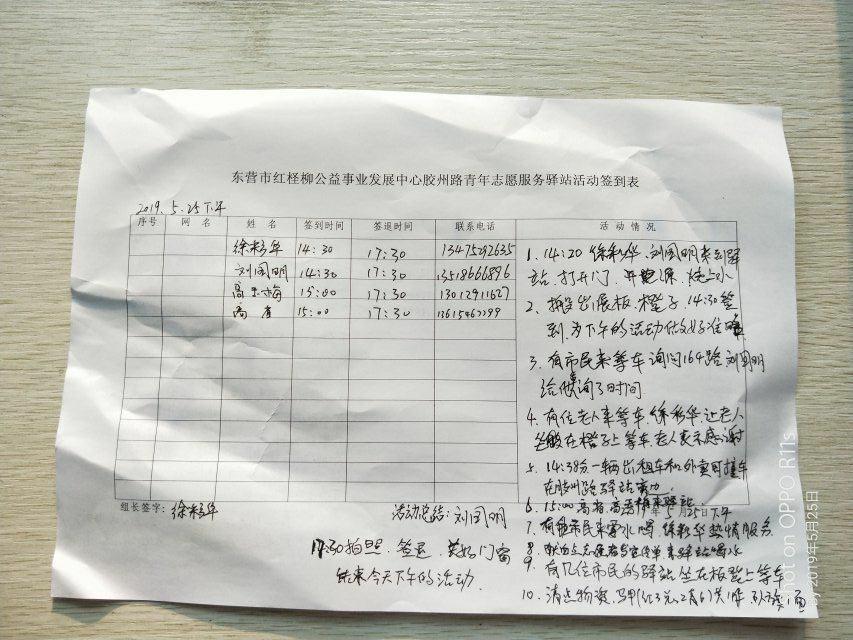 东营市红柽柳公益事业发展中心胶州路青年志愿服务驿站活动签到表
2019.5.25下午
序号 网 名 姓 名 签到时间 签退时间 联系电话 活 动 情 况
徐彩华 14:30 17:30 13475292635
刘国明 14:30 17:30 13518666896
15:00 17:30 13012911627
高省 15:00 17:30
1、14:20 徐彩华、刘国明来到驿
站、打开门、开电源、烧上水
2、搬出展板、橙子 14:30签
到,为下午的活动做好准备
3、有市民来等车询问164路 刘国明
给他询了时间
4、有位老人来等车、徐彩华让老人
坐在橙子上等车,老人表示感谢
5、14:38分一辆出租车和外卖撞车
在胶州路驿站
6、15:00高省、高 5月25日下午
7、有市民来 水喝、徐彩华热情服务
8、
9、有几位市民的驿站坐在板凳上等车
10、清点物资、
组长签字: 徐彩华 活动总结: 刘国明
17:30拍照、签退、关好门窗
结束今天下午的活动.
Shot on OPPO R11s
By 2019年5月25日